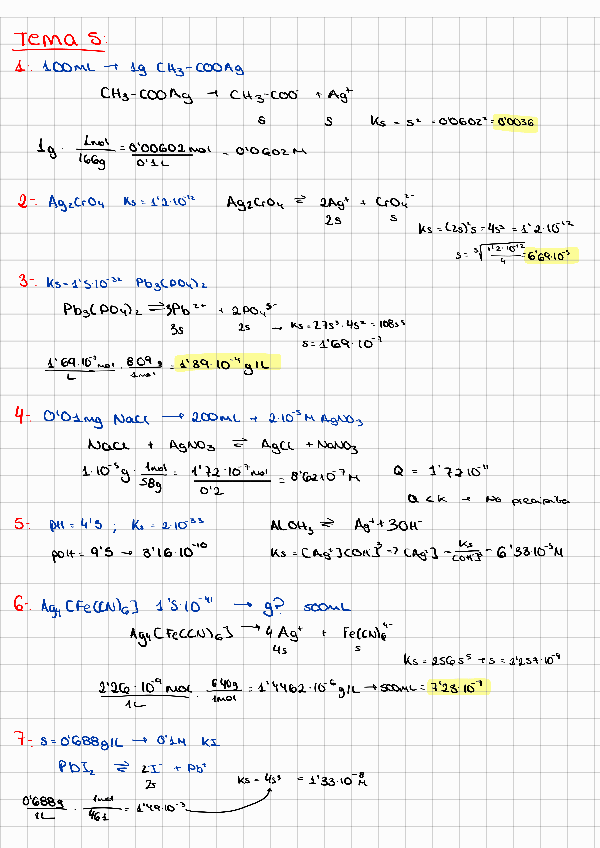 Tema 5:
1. 100mL → 1g CH₃-COOAg
CH₃-COOAg → CH₃-COO⁻ + Ag⁺
s s Ks = s² = 0'0602² = 0'0036
1g · 1mol/166g = 0'00602 mol/0'1L = 0'0602 M
2-. Ag₂CrO₄ Ks = 1'2·10⁻¹² Ag₂CrO₄ ⇌ 2Ag⁺ + CrO₄²⁻
2s s
Ks = (2s)²s = 4s³ = 1'2·10⁻¹²
s = ³√(1'2·10⁻¹²/4) = 6'69·10⁻⁵
3-. Ks = 1'5·10⁻³² Pb₃(PO₄)₂
Pb₃(PO₄)₂ ⇌ 3Pb²⁺ + 2PO₄³⁻
3s 2s → Ks = 27s³·4s² = 108s⁵
s = 1'69·10⁻⁷
1'69·10⁻⁷ mol/L · 809 g/1mol = 1'89·10⁻⁴ g/L
4-. 0'01mg NaCl → 200mL + 2·10⁻⁵ M AgNO₃
NaCl + AgNO₃ ⇌ AgCl + NaNO₃
1·10⁻⁵g · 1mol/58g = 1'72·10⁻⁷ mol/0'2 = 8'62·10⁻⁷ M Q = 1'72·10⁻¹¹
Q < K → No precipita
5- pH = 4'5 ; Ks = 2·10⁻³³ AlOH₃ ⇌ Ag⁺ + 3OH⁻
pOH = 9'5 → 3'16·10⁻¹⁰ Ks = [Ag⁺][OH]³ → [Ag⁺] = Ks/[OH]³ = 6'33·10⁻⁵ M
6-. Ag₄[Fe(CN)₆] 1'5·10⁻⁴¹ → g? 500mL
Ag₄[Fe(CN)₆] → 4Ag⁺ + Fe(CN)₆⁴⁻
4s s
Ks = 256s⁵ → s = 1'257·10⁻⁹
2'26·10⁻⁹ mol/1L · 640g/1mol = 1'4462·10⁻⁶ g/L → 500mL = 7'23·10⁻⁷
7-. s = 0'688g/L → 0'1M KI
PbI₂ ⇌ 2I⁻ + Pb⁺
2s Ks = 4s³ = 1'33·10⁻⁸ M
0'688g/1L · 1mol/461 = 1'49·10⁻³